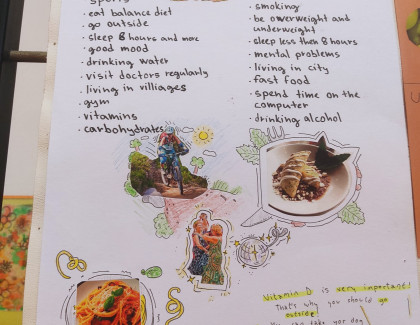 sports
· eat balance diet
· go outside
· sleep 8 hours and more
· good mood
· drinking water
· visit doctors regularly
· living in villiages
· gym
· vitamins
· carbohydrates
smoking
· be owerweight and
underweight
· sleep less then 8 hours
· mental problems
· living in city
· fast food
· spend time on the
computer
· drinking alcohol
Vitamin D is very important!
That's why you should go
outside!
You can take your dog